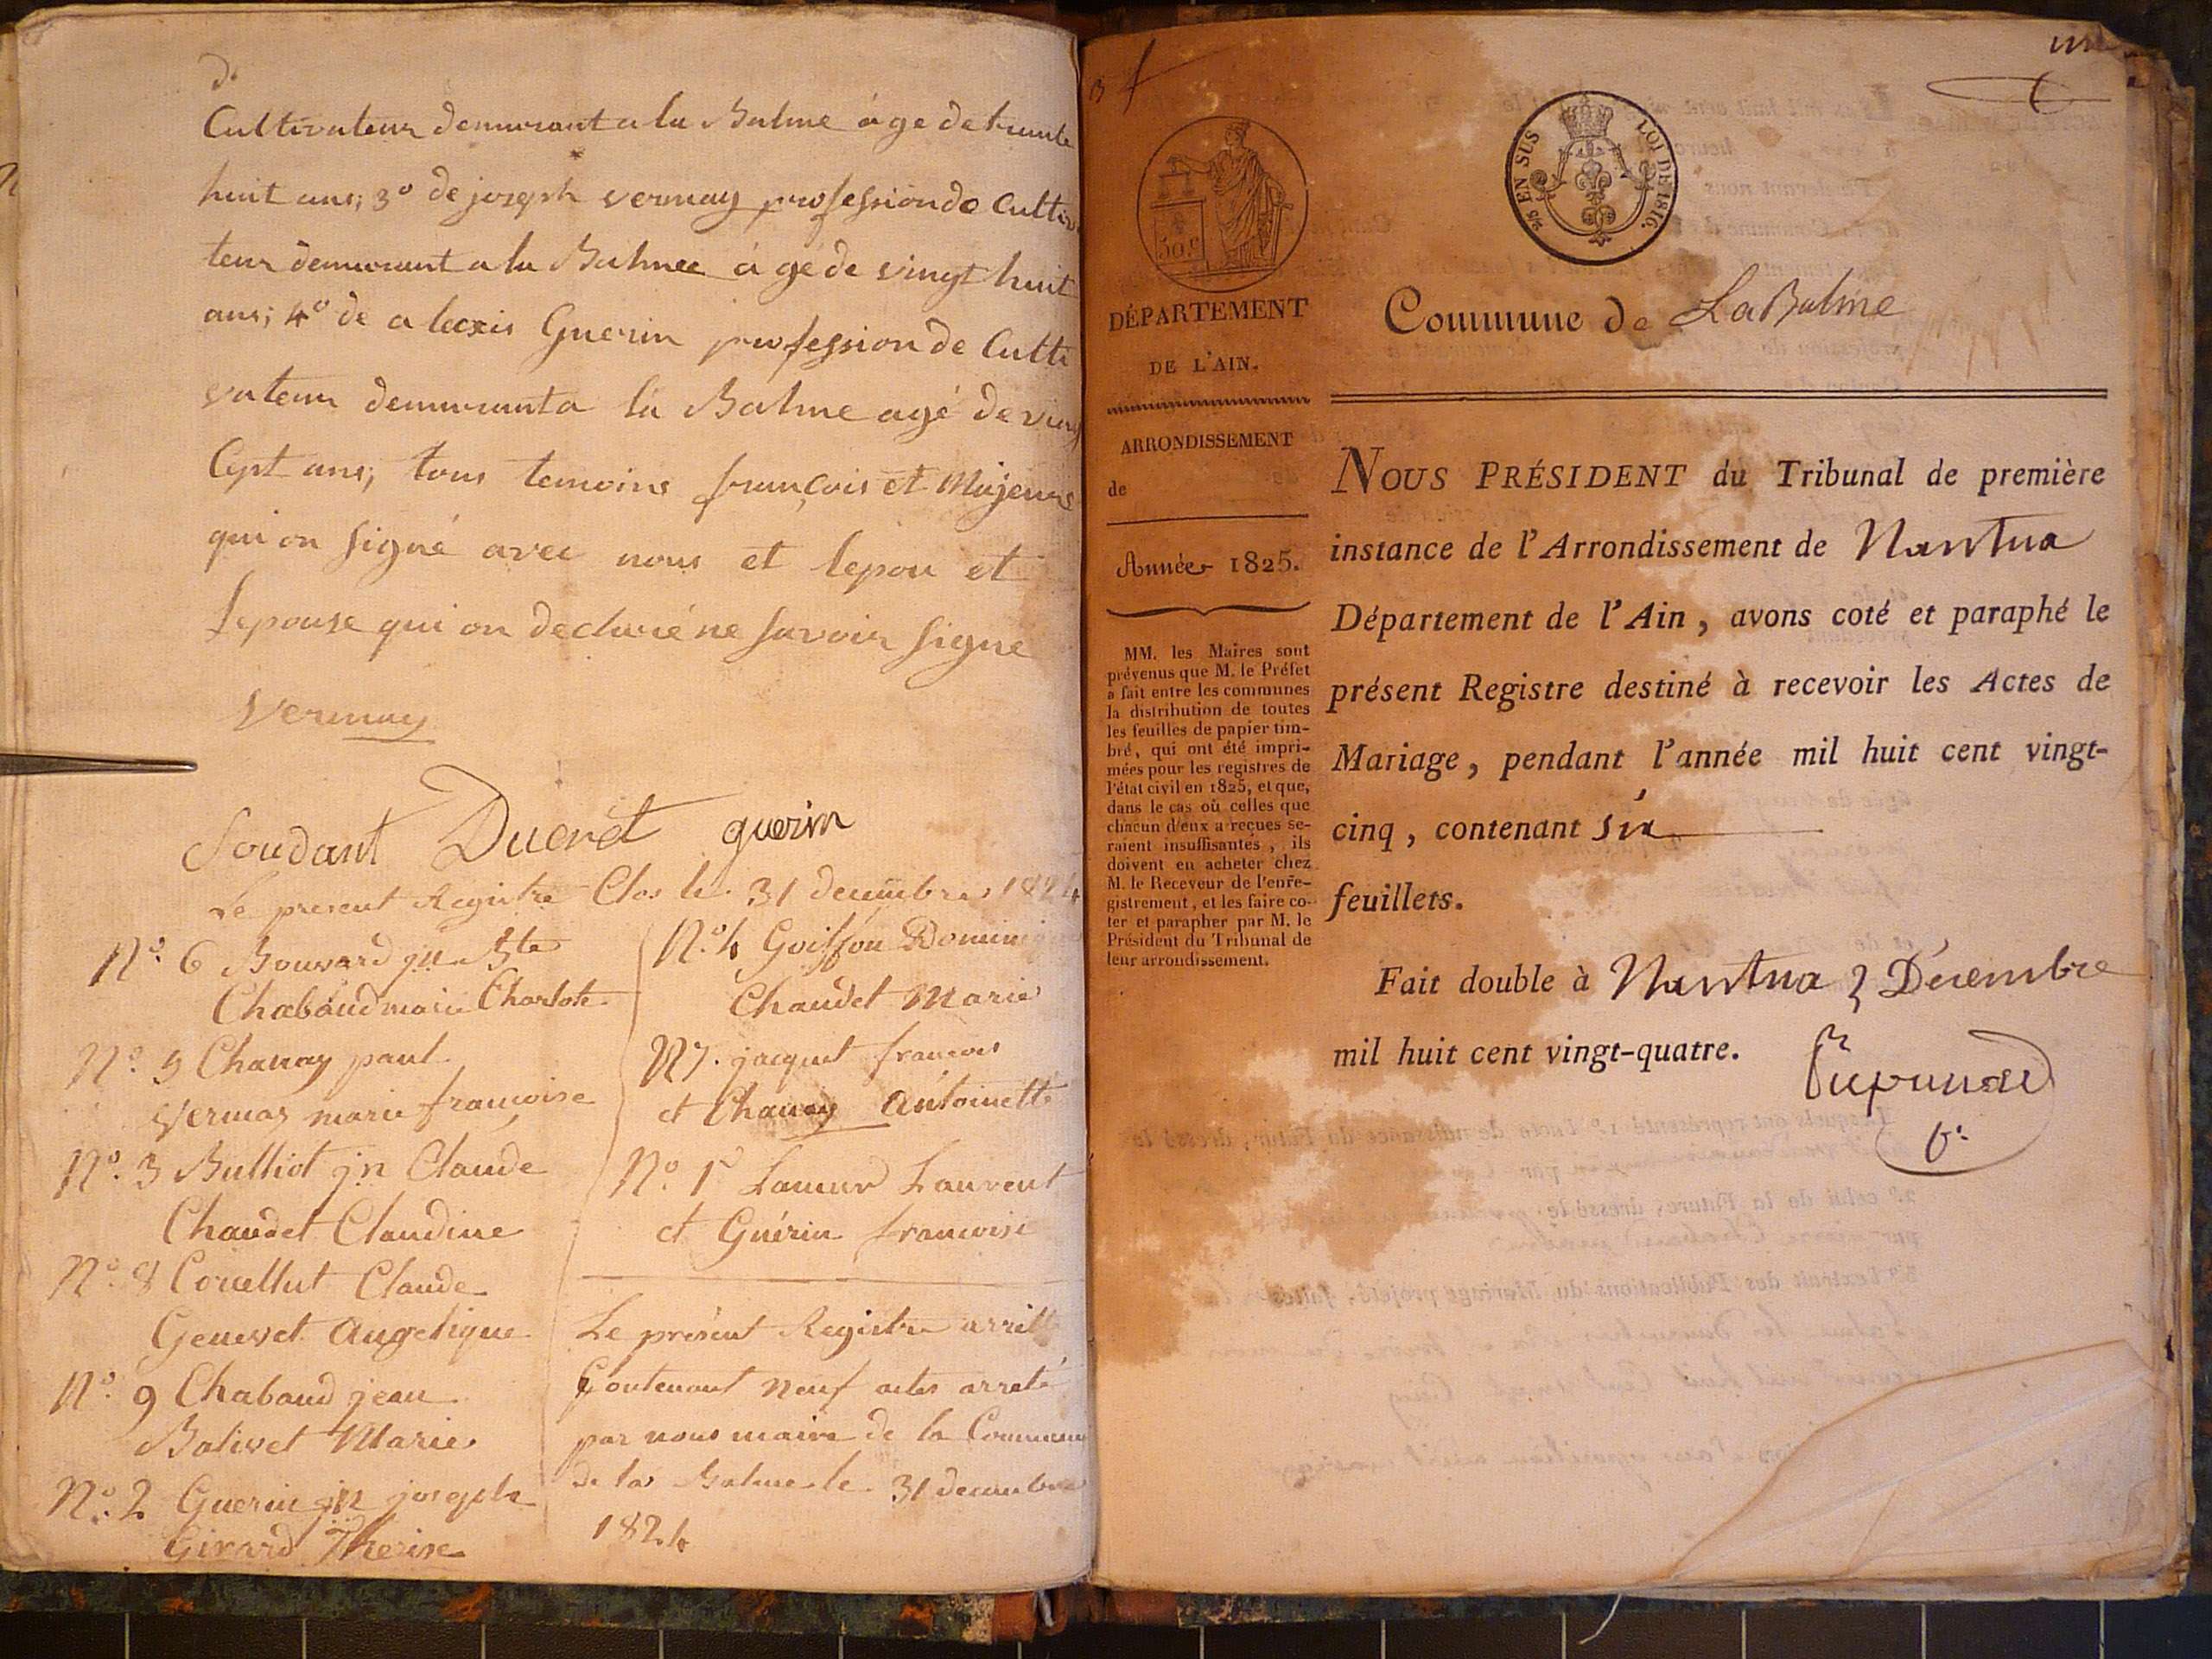 d.
Cultivateur demurant a la Balme agé de trante
huit ans; 3o de joseph vernay profession de Cultiva
teur demurant a la Balmee agé de vingt huit
ans; 4o de alecxis Guerin profession de Culti
vateur demurant a la Balme agé de vingt
Cept ans, tous temoins françois et Majeurs
qui on signé avec nous et lepou et
lepouse qui on declaré ne savoir signe
Vernay
Soudant Ducret guerin
Le present Registre Clos le 31 decembre 1824
No. 6 Bouvard jn Bte
Chabaud marie Charlote
No. 5 Chanay paul
Vernay marie françoise
No. 3 Bulliot jn Claude
Chaudet Claudine
No. 8 Claude
Genevet Angelique
No. 9 Chabaud jean
Balivet Marie
No. 2 Guerin jn joseph
Girard Therise
No. 4 Goiffon Dominique
Chaudet Marie
N 7. jacquet francois
et Chanay Antoinette
No. 1 Laurent
et Guérin francoise
Le présent Registre
Contenant neuf actes arreté
par nous maire de la Commune
de la Balme le 31 decembre
1824
50 C
DÉPARTEMENT
DE L'AIN.
ARRONDISSEMENT
de
Année 1825.
MM. les Maires sont
prévenus que M. le Préfet
a fait entre les communes
la distribution de toutes
les feuilles de papier tim-
bré, qui ont été impri-
mées pour les registres de
l'état civil en 1825, et que,
dans le cas où celles que
chacun d'eux a reçues se-
raient insuffisantes, ils
doivent en acheter chez
M. le Receveur de l'enre-
gistrement, et les faire co-
ter et parapher par M. le
Président du Tribunal de
leur arrondissement.
EN SUS LOI DE 1816.
Commune de La Balme
NOUS PRÉSIDENT du Tribunal de première
instance de l'Arrondissement de Nantua
Département de l'Ain, avons coté et paraphé le
présent Registre destiné à recevoir les Actes de
Mariage, pendant l'année mil huit cent vingt-
cinq, contenant six
feuillets.
Fait double à Nantua 3 Décembre
mil huit cent vingt-quatre.